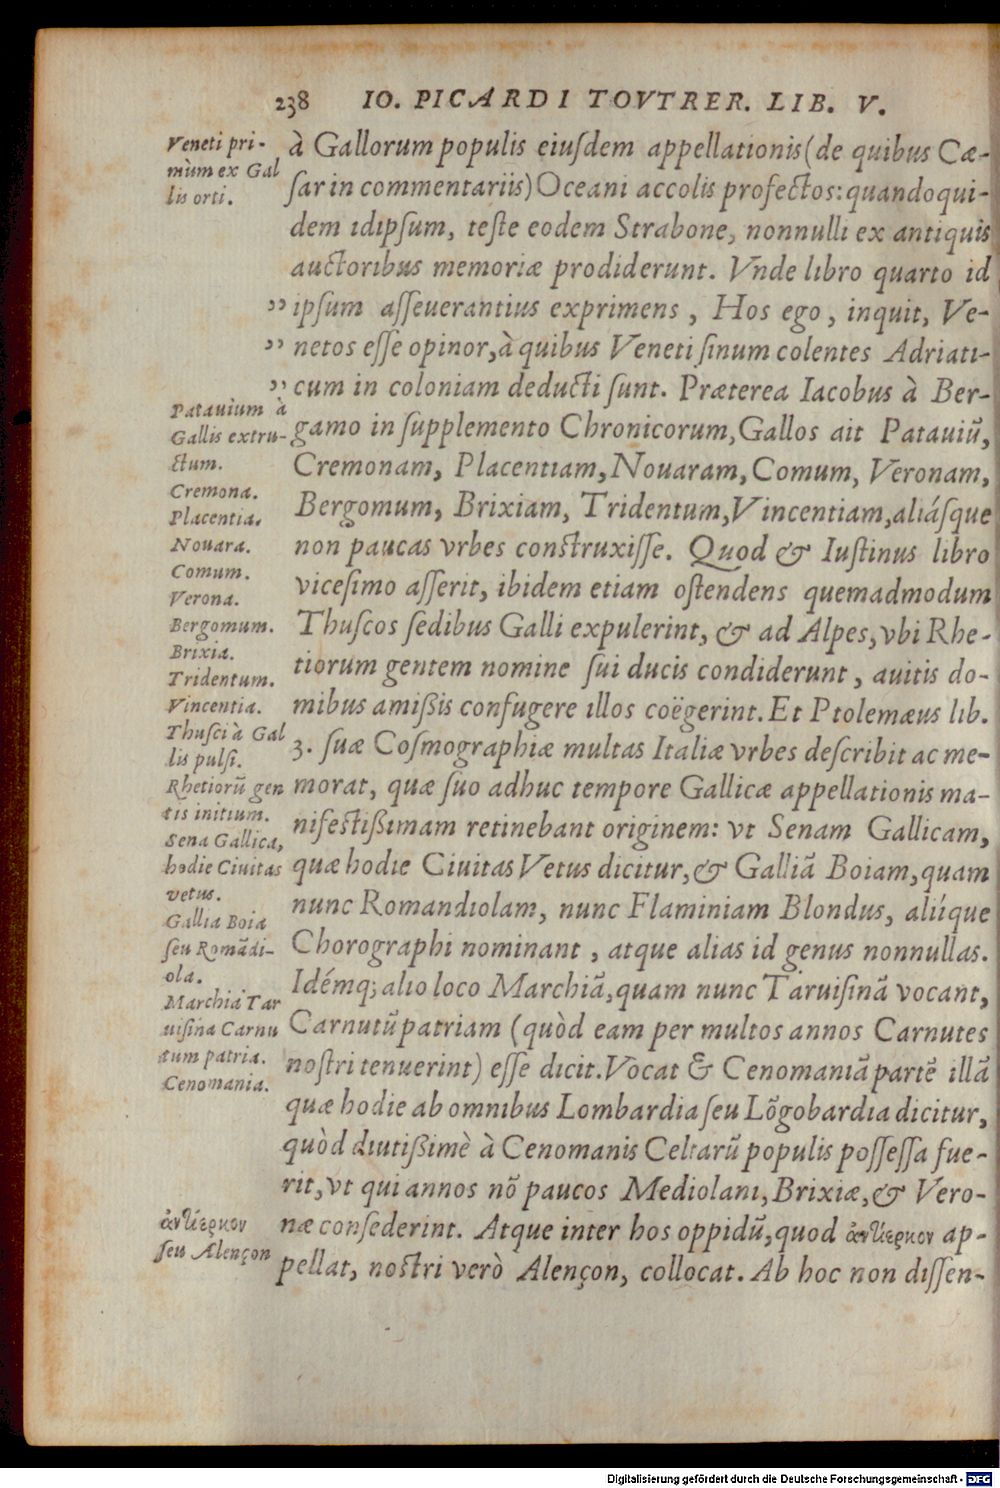 238 IO. PICARDI TOVTRER. LIB. V.
Veneti pri-
mùm ex Gal
lis orti.
à Gallorum populis eiuſdem appellationis (de quibus Cæ-
ſar in commentariis) Oceani accolis profectos: quandoqui-
dem idipſum, teſte eodem Strabone, nonnulli ex antiquis
auctoribus memoriæ prodiderunt. Vnde libro quarto id
" ipſum aſſeuerantius exprimens, Hos ego, inquit, Ve-
" netos eſſe opinor, à quibus Veneti ſinum colentes Adriati-
" cum in coloniam deducti ſunt. Præterea Iacobus à Ber-
gamo in ſupplemento Chronicorum, Gallos ait Patauiũ,
Cremonam, Placentiam, Nouaram, Comum, Veronam,
Bergomum, Brixiam, Tridentum, Vincentiam, aliáſque
non paucas vrbes conſtruxiſſe. Quod & Iuſtinus libro
viceſimo aſſerit, ibidem etiam oſtendens quemadmodum
Thuſcos ſedibus Galli expulerint, & ad Alpes, vbi Rhe-
tiorum gentem nomine ſui ducis condiderunt, auitis do-
mibus amißis confugere illos coëgerint. Et Ptolemæus lib.
3. ſuæ Coſmographiæ multas Italiæ vrbes deſcribit ac me-
morat, quæ ſuo adhuc tempore Gallicæ appellationis ma-
nifeſtißimam retinebant originem: vt Senam Gallicam,
quæ hodie Ciuitas Vetus dicitur, & Galliã Boiam, quam
nunc Romandiolam, nunc Flaminiam Blondus, aliíque
Chorographi nominant, atque alias id genus nonnullas.
Idémq; alio loco Marchiã, quam nunc Taruiſinã vocant,
Carnutũ patriam (quòd eam per multos annos Carnutes
noſtri tenuerint) eſſe dicit. Vocat & Cenomaniã partẽ illã
quæ hodie ab omnibus Lombardia ſeu Lõgobardia dicitur,
quòd diutißimè à Cenomanis Celtarũ populis poſſeſſa fue-
rit, vt qui annos nõ paucos Mediolani, Brixiæ, & Vero-
næ conſederint. Atque inter hos oppidũ, quod ἀντίερκον ap-
pellat, noſtri verò Alençon, collocat. Ab hoc non diſſen-
Patauium à
Gallis extru-
ctum.
Cremona.
Placentia.
Nouara.
Comum.
Verona.
Bergomum.
Brixia.
Tridentum.
Vincentia.
Thuſci à Gal
lis pulſi.
Rhetiorũ gen
tis initium.
Sena Gallica,
hodie Ciuitas
vetus.
Gallia Boia
ſeu Romãdi-
ola.
Marchia Tar
uiſina Carnu
tum patria.
Cenomania.
ἀντίερκον
ſeu Alençon
Digitalisierung gefördert durch die Deutsche Forschungsgemeinschaft - DFG